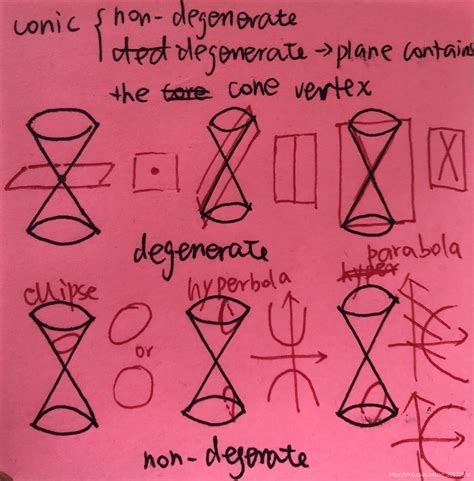 conic { non-degenerate
ded degenerate → plane contains
the core cone vertex
degenerate
ellipse
hyperbola
hyper
parabola
or
non-degerate